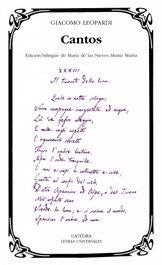 GIACOMO LEOPARDI
Cantos
Edición bilingüe de María de las Nieves Muñiz Muñiz
XXXIII
Il tramonto della luna.
Quale in notte solinga,
Sovra campagne inargentate ed acque,
Là 've zefiro aleggia,
E mille vaghi aspetti
E ingannevoli obbietti
Fingon l'ombre lontane
Infra l'onde tranquille
E rami e siepi e collinette e ville;
Giunta al confin del cielo,
Dietro Apennino od Alpe, o del Tirreno
Nell'infinito seno
Scende la luna, e si scolora il mondo;
Spariscon l'ombre, ed una
CATEDRA
LETRAS UNIVERSALES